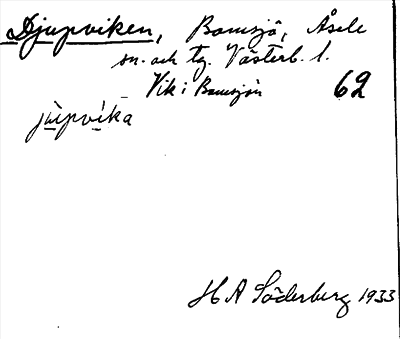 Djupviken, Bomsjö, Åsele
sn. och tg. Västerb. l.
Vik i Bomsjön 62
jùpvìka
H A Söderberg 1933